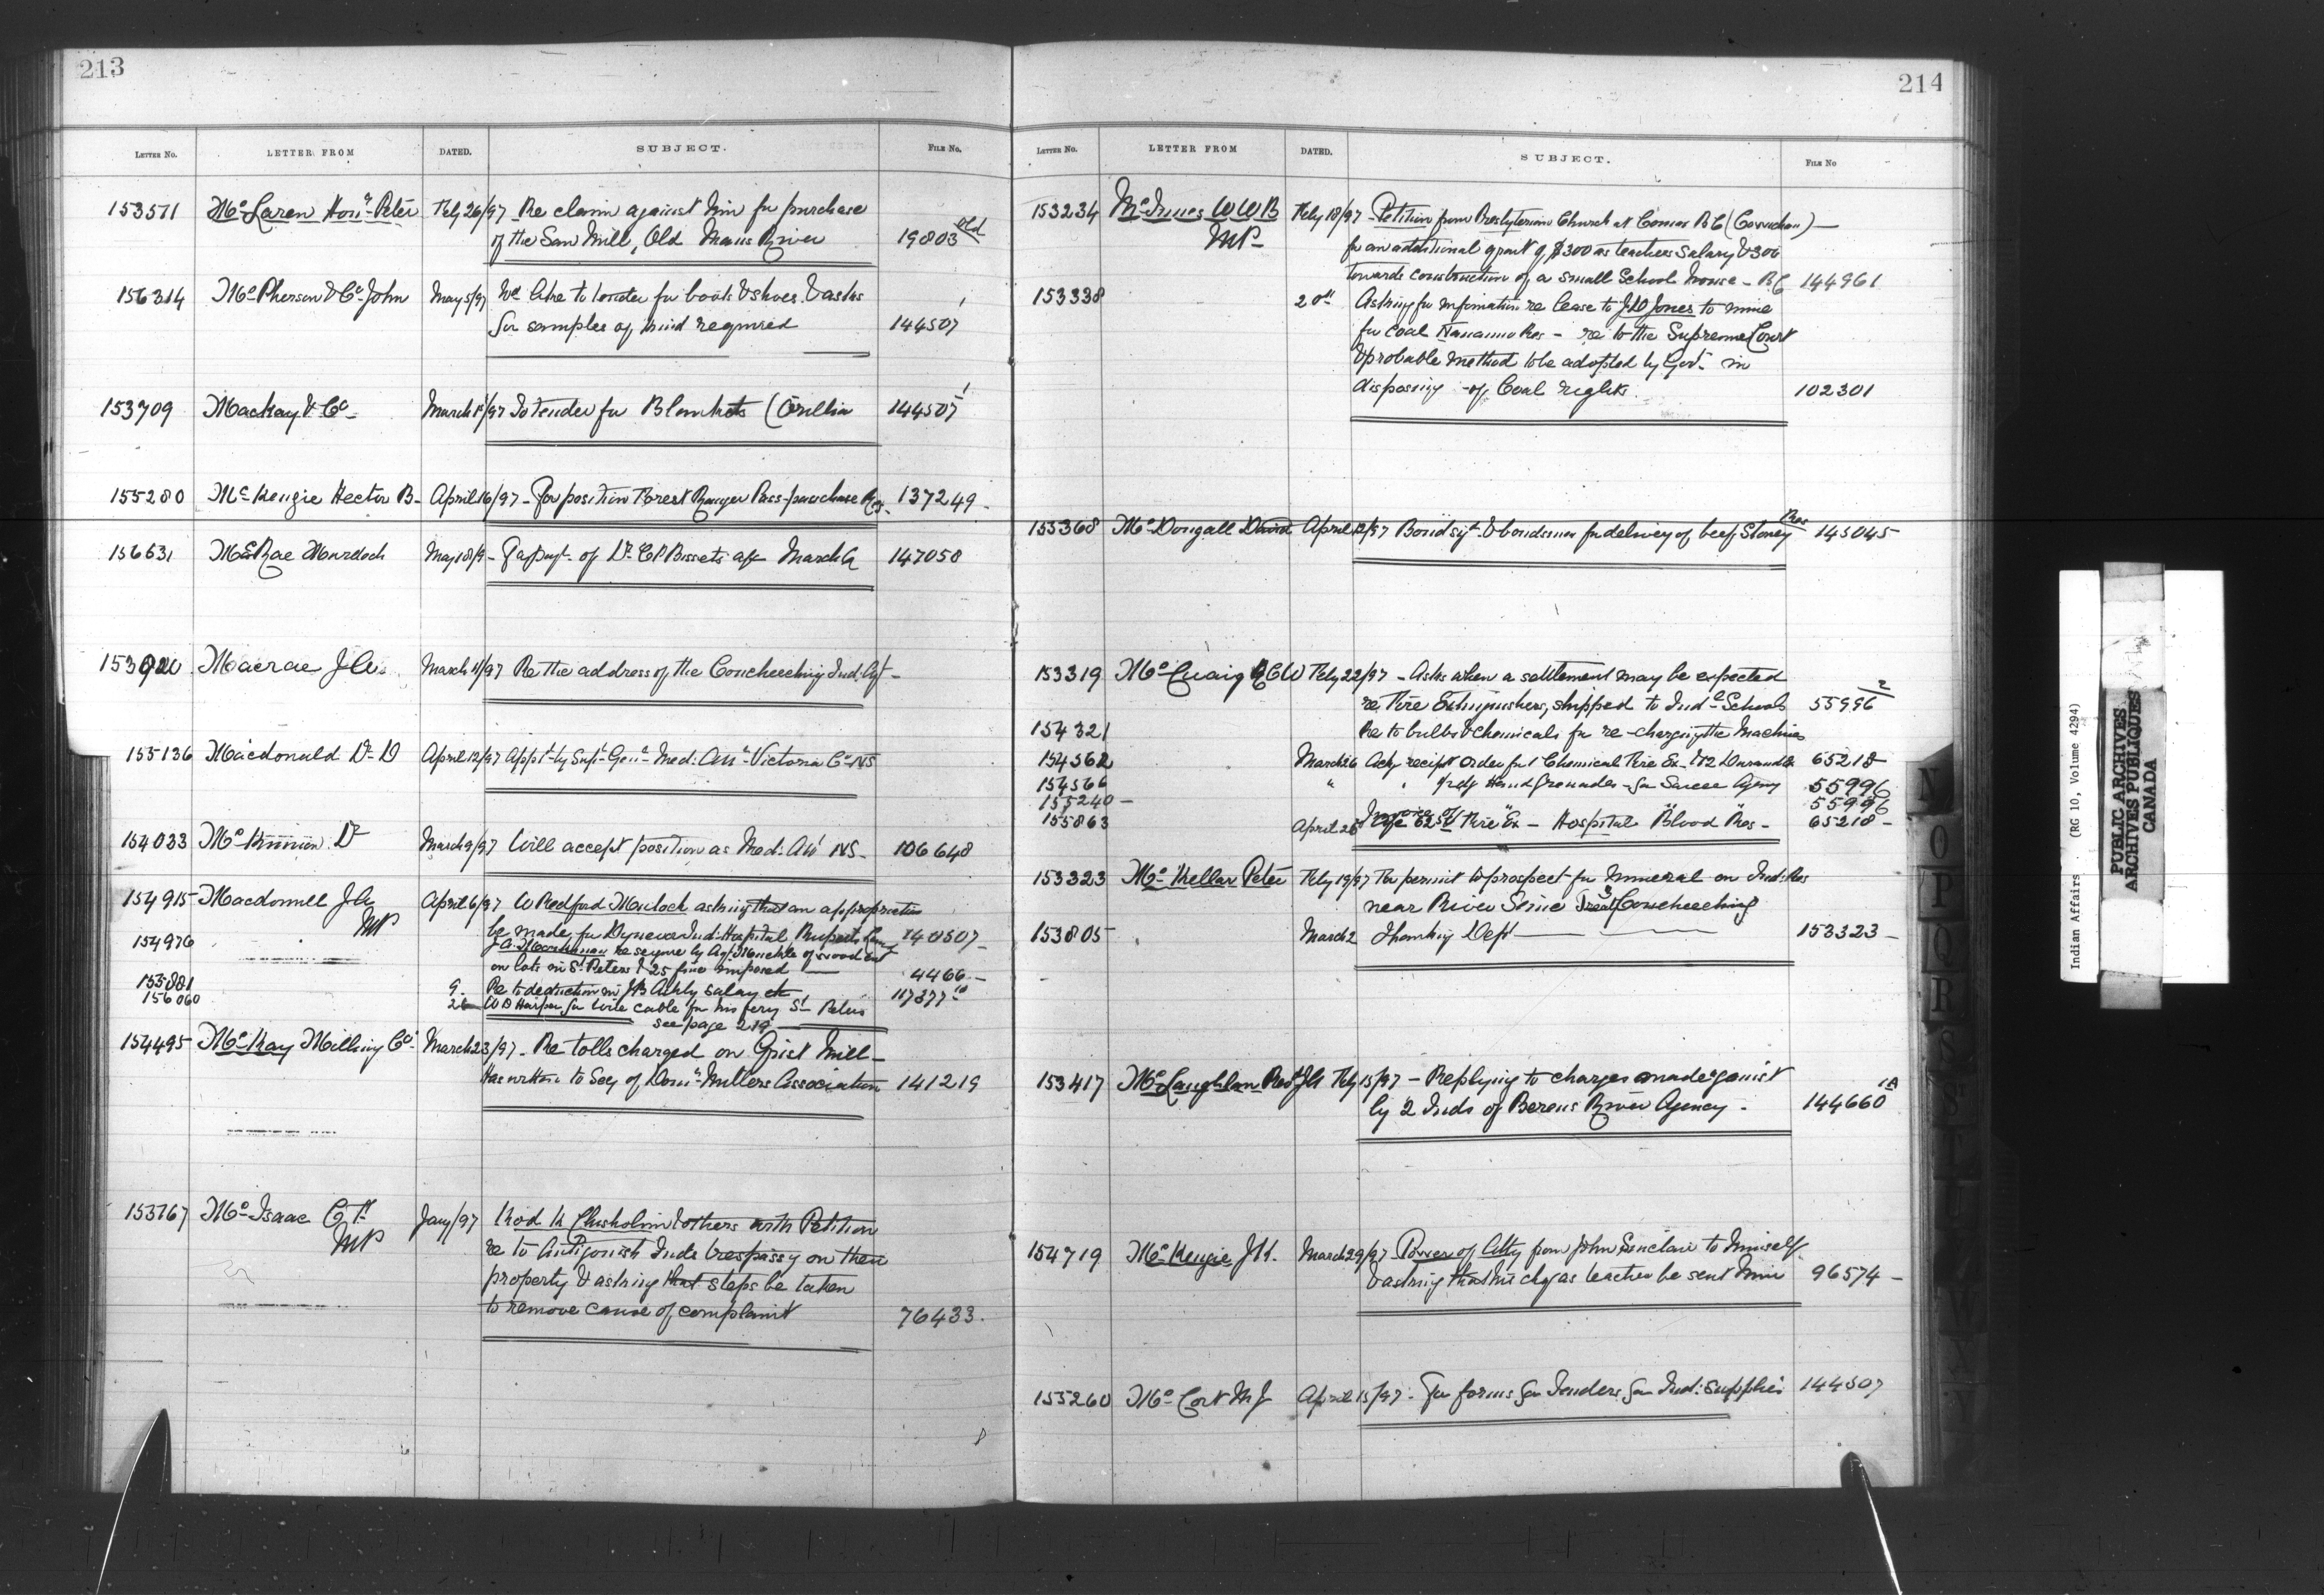 213
LETTER No. LETTER FROM DATED. SUBJECT. FILE No.
153571 McLaren Honl Peter Feby 26/97 Re claim against him for purchase
of the Saw Mill, Old Mans River 19803 Old
156314 McPherson & Co John May 5/97 We like to tender for boots & shoes & asks
for samples of kind required 144507
153709 Mackay & Co March 1/97 To tender for Blankets (Orillia 144507 1
155280 McKenzie Hector B- April 16/97 - For position Forest Ranger Pass-paschase Res. 137249-
156631 McRae Murdoch May 18/9 - For payt. of Dr. C P Bissets a/c March 147058
Macrae J A March 11/97 Re the address of the Coucheeching Ind. Agt -
155136 Macdonald Dr D April 12/97 Appt by Supt Genl Med: Att Victoria Co NS
154033 McKinnon Dr March 9/97 Will accept position as Med: Att NS- 106648
154915 Macdonnell J A April 6/97 W Redford Mulock asking that an appropriation
MP
be made for Dynevor Ind: Hospital 140507-
154976 re seizure by Agt Muckle of wood cut
on lots in St Peters & 25 fine imposed 4466-
155881 9. Re to deduction in salary 117377 10
156060 26 W D Harper for wire cable for his ferry St Peters
see page 219
154495 McKay Milling Co- March 23/97 - Re tolls charged on Grist Mill -
Has written to Secy of Domn Millers Association 141219
153767 McIsaac C F Jany/97 Rod K Chisholm & others with Petition
MP
re to Antigonish Inds trespassg on their
property & asking that steps be taken
to remove cause of complaint 76433.
214
LETTER No. LETTER FROM DATED. SUBJECT. FILE No
153234 McInnes W W B Feby 18/97 - Petition from Presbyterian Church at Comox B C (Cowichan) -
MP-
for an additional grant of $300 as teachers Salary & 300
towards construction of a small School house - BC 144961
153338 20th Asking for information re lease to Jones to mine
for Coal Nanaimo Res - re to the Supreme Court
& probable method to be adopted by Govt in
disposing - of Coal rights. 102301
155368 McDougall David April 12/97 Bond sigt & bondsmen for delivery of beef Stoney Res 145045
153319 McCuaig C W Feby 22/97 - Asks when a settlement may be expected
re Fire Extinguishers, shipped to Indl Schools 55996 2
154321 Re to bulbs & chemicals for re-charging the Machines
154562 March 26 Ackg receipt order for 1 Chemical Fire Ex 65218
154566 " " Hand Grenades - for Sarcee Agency 55996
155240 - 55996
155863 April 26 Fire Ex - Hospital Blood Res - 65218 -
153323 McKellar Peter Feby 19/97 For permit to prospect for Mineral on Ind: Res
near River Seine Treaty 3 Coucheeching
153805 " March 2 Thanking Dept 153323 -
153417 McLaughlan Revd J A Feby 15/97 - Replying to charges made against
by 2 Inds of Berens River Agency. 144660 1A
154719 McKenzie J K. March 29/97 - Power of Atty from John Sinclair to himself
& asking that his chq as teacher be sent him 96574 -
155260 McCort M J April 15/97 - For forms for Tenders for Ind: Supplies 144507
N
O
P
Q
R
S
T
U
V
W
Indian Affairs. (RG 10, Volume 4294)
PUBLIC ARCHIVES
ARCHIVES PUBLIQUES
CANADA